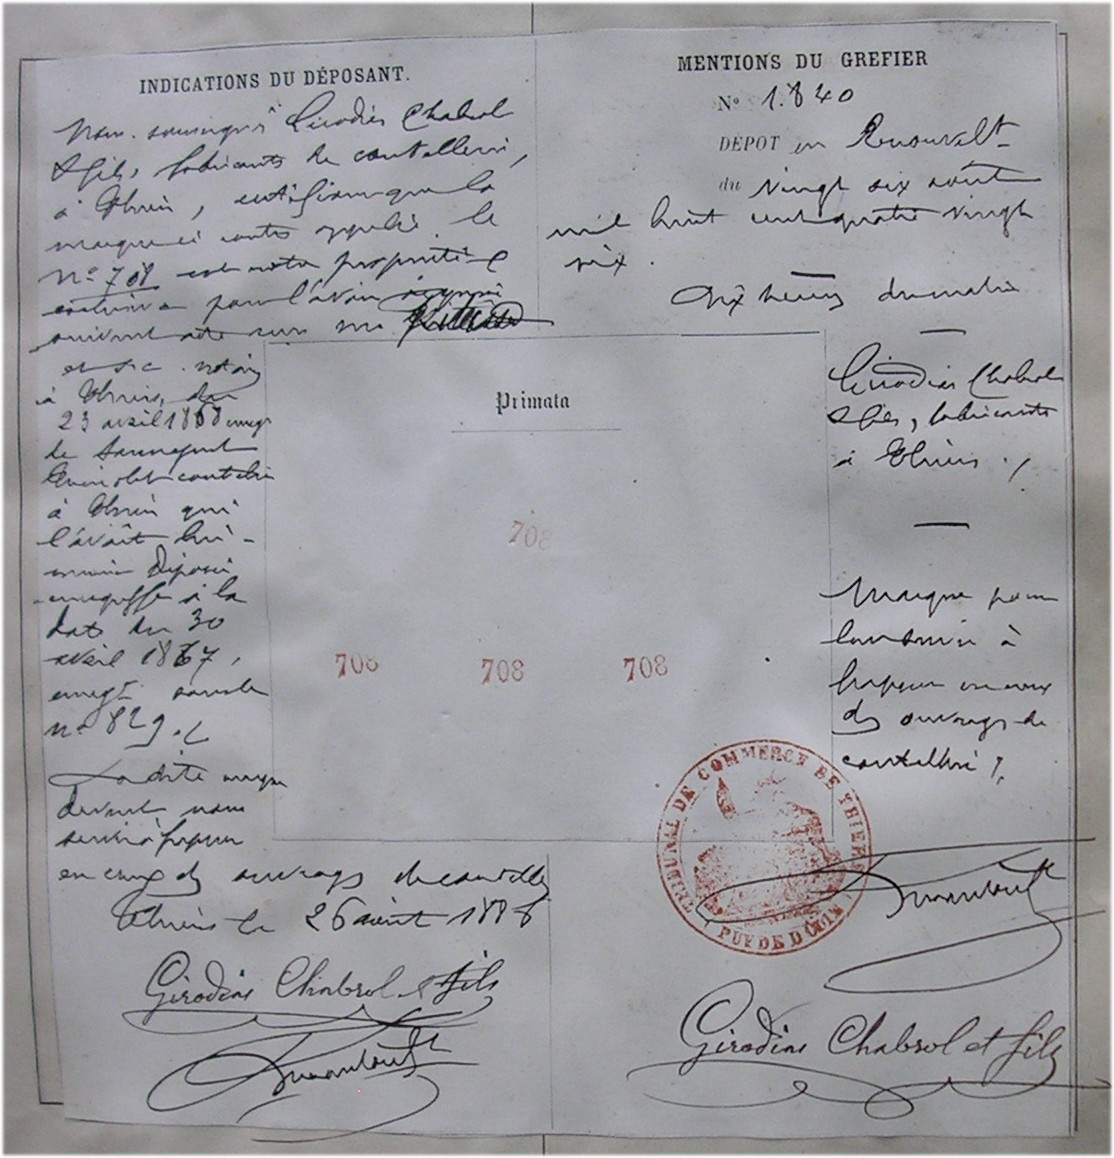 INDICATIONS DU DÉPOSANT.
Nous soussignés Girodias Chabrol
& fils, fabricants de coutellerie,
à Thiers, certifions que la
marque ci contre appelée le
N° 708 est notre propriété
exclusive pour l'avoir acquise
suivant acte reçu Me
et s.c. notaire
à Thiers, du
23 avril 1868 enregt
de
coutelier
à Thiers qui
l'avait lui-
même déposée
au greffe à la
date du 30
avril 1867,
enregt sous le
n° 829.
Ladite marque
devant nous
servir à frapper
en creux des ouvrages de coutellerie
Thiers le 26 août 1886
Girodias Chabrol et fils
MENTIONS DU GREFIER
N° 1.840
DÉPOT en Renouvelt
du vingt six août
mil huit cent quatre vingt
six.
Dix heures du matin
Girodias Chabrol
& fils, fabricants
à Thiers.
Marque pour
servir à
frapper en creux
des ouvrages de
coutellerie
Primata
708
708 708 708
TRIBUNAL DE COMMERCE DE THIERS
PUY DE DOME
Girodias Chabrol et fils